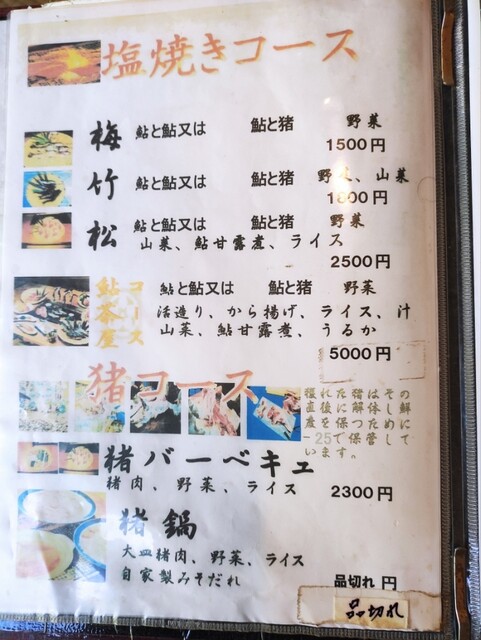 塩焼きコース
梅 鮎と鮎又は 鮎と猪 野菜
1500円
竹 鮎と鮎又は 鮎と猪 野菜、山菜
1800円
松 鮎と鮎又は 鮎と猪 野菜
山菜、鮎甘露煮、ライス
2500円
鮎茶屋コース 鮎と鮎又は 鮎と猪 野菜
活造り、から揚げ、ライス、汁
山菜、鮎甘露煮、うるか
5000円
猪コース
獲れた猪はその
直後に解体し鮮
度を保つために
-25で保管して
います。
猪バーベキュ
猪肉、野菜、ライス
2300円
猪鍋
大皿猪肉、野菜、ライス
自家製みそだれ
品切れ 円
品切れ